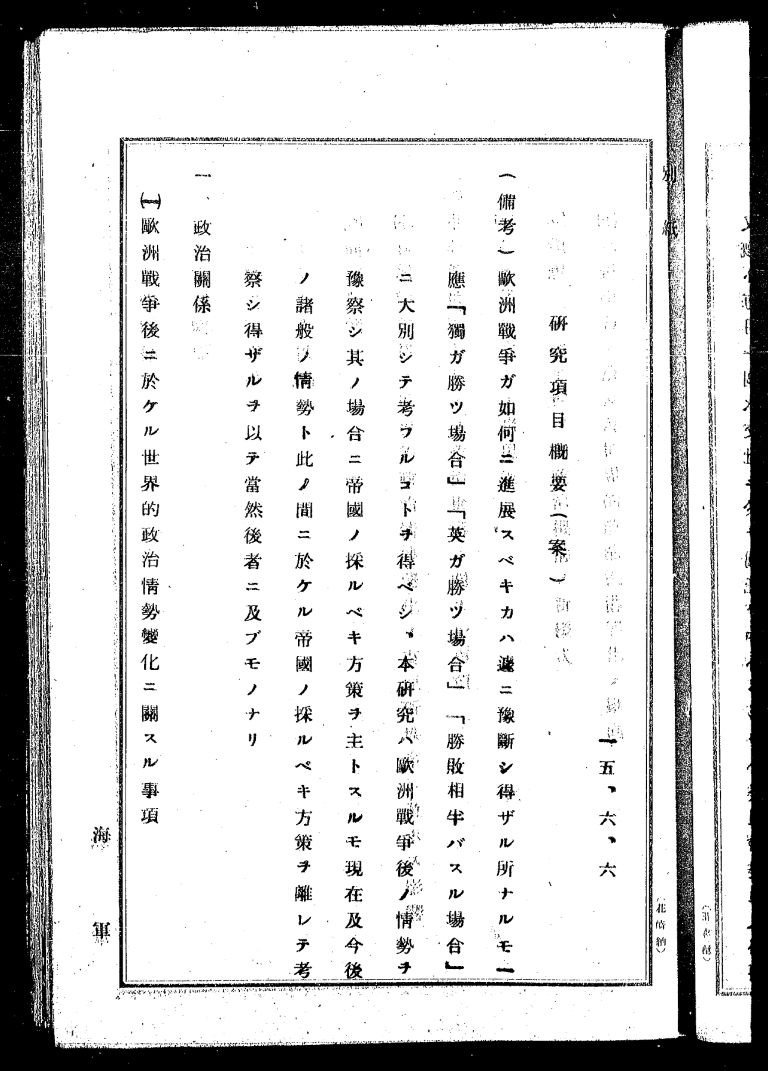 別紙
一五、六、六
研究項目概要(案)
(備考)歐洲戰爭ガ如何ニ進展スベキカハ遽ニ豫斷シ得ザル所ナルモ一
應「獨ガ勝ツ場合」「英ガ勝ツ場合」「勝敗相半バスル場合」
ニ大別シテ考フルコトヲ得ベシ、本研究ハ歐洲戰爭後ノ情勢ヲ
豫察シ其ノ場合ニ帝國ノ採ルベキ方策ヲ主トスルモ現在及今後
ノ諸般ノ情勢ト此ノ間ニ於ケル帝國ノ採ルベキ方策ヲ離レテ考
察シ得ザルヲ以テ當然後者ニ及ブモノナリ
一、政治關係
(一)歐洲戰爭後ニ於ケル世界的政治情勢變化ニ關スル事項
海軍